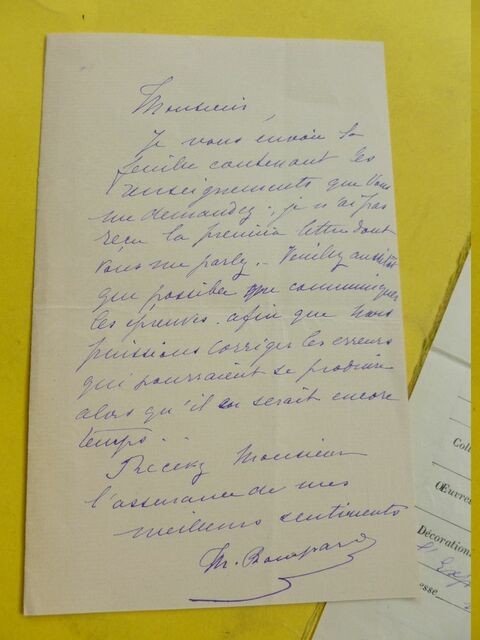 Monsieur,
Je vous envoie la
feuille contenant les
renseignements que vous
me demandez; je n'ai pas
reçu la première lettre dont
vous me parlez. Veuillez aussitôt
que possible me communiquer
les épreuves afin que nous
puissions corriger les erreurs
qui pourraient se produire
alors qu'il en serait encore
temps...
Recevez Monsieur
l'assurance de mes
meilleurs sentiments
Colla
Œuvres
Décorations
esse